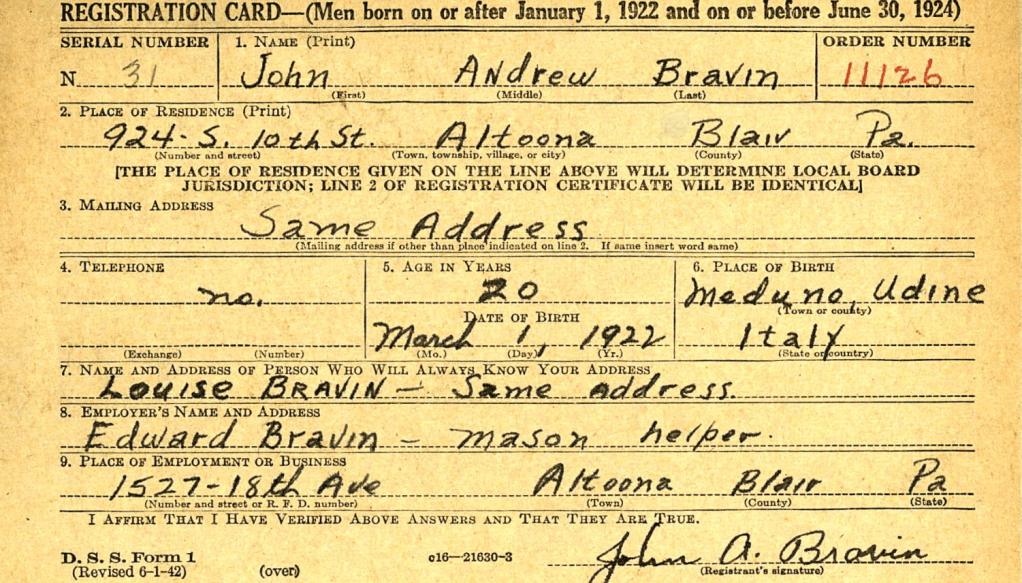 REGISTRATION CARD—(Men born on or after January 1, 1922 and on or before June 30, 1924)
SERIAL NUMBER 1. NAME (Print) ORDER NUMBER
N 31 John Andrew Bravin 11126
(First) (Middle) (Last)
2. PLACE OF RESIDENCE (Print)
924-S. 10th St. Altoona Blair Pa.
(Number and street) (Town, township, village, or city) (County) (State)
[THE PLACE OF RESIDENCE GIVEN ON THE LINE ABOVE WILL DETERMINE LOCAL BOARD
JURISDICTION; LINE 2 OF REGISTRATION CERTIFICATE WILL BE IDENTICAL]
3. MAILING ADDRESS
Same Address
(Mailing address if other than place indicated on line 2. If same insert word same)
4. TELEPHONE 5. AGE IN YEARS 6. PLACE OF BIRTH
no. 20 Meduno, Udine
(Town or county)
DATE OF BIRTH
March 1, 1922 Italy
(Exchange) (Number) (Mo.) (Day) (Yr.) (State or country)
7. NAME AND ADDRESS OF PERSON WHO WILL ALWAYS KNOW YOUR ADDRESS
Louise BRAVIN — Same address.
8. EMPLOYER'S NAME AND ADDRESS
Edward Bravin — mason helper.
9. PLACE OF EMPLOYMENT OR BUSINESS
1527-18th Ave Altoona Blair Pa
(Number and street or R. F. D. number) (Town) (County) (State)
I AFFIRM THAT I HAVE VERIFIED ABOVE ANSWERS AND THAT THEY ARE TRUE.
D. S. S. Form 1 c16—21630-3 John A. Bravin
(Revised 6-1-42) (over) (Registrant's signature)